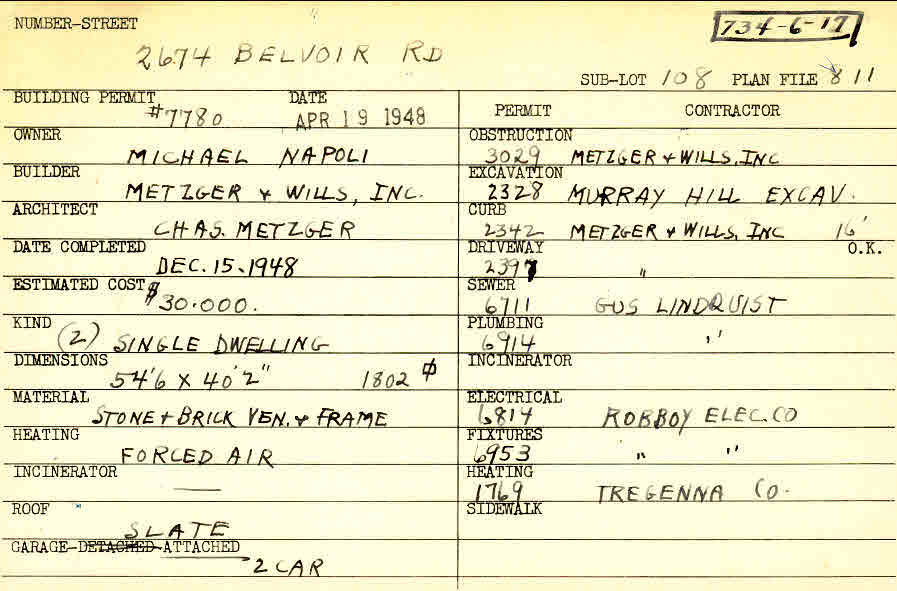 NUMBER-STREET
734-6-17
2674 BELVOIR RD
SUB-LOT 108 PLAN FILE 811
BUILDING PERMIT DATE
#7780 APR 19 1948
OWNER
MICHAEL NAPOLI
BUILDER
METZGER & WILLS, INC.
ARCHITECT
CHAS. METZGER
DATE COMPLETED
DEC. 15. 1948
ESTIMATED COST
$30.000.
KIND
(2) SINGLE DWELLING
DIMENSIONS
54'6 X 40'2" 1802 ▱
MATERIAL
STONE & BRICK VEN. & FRAME
HEATING
FORCED AIR
INCINERATOR
—
ROOF
SLATE
GARAGE-DETACHED-ATTACHED
2 CAR
PERMIT CONTRACTOR
OBSTRUCTION
3029 METZGER & WILLS, INC
EXCAVATION
2328 MURRAY HILL EXCAV.
CURB
2342 METZGER & WILLS, INC 16'
DRIVEWAY O.K.
2397 "
SEWER
6711 GUS LINDQUIST
PLUMBING
6914 "
INCINERATOR
ELECTRICAL
6814 ROBBOY ELEC. CO
FIXTURES
6953 " "
HEATING
1769 TREGENNA CO.
SIDEWALK